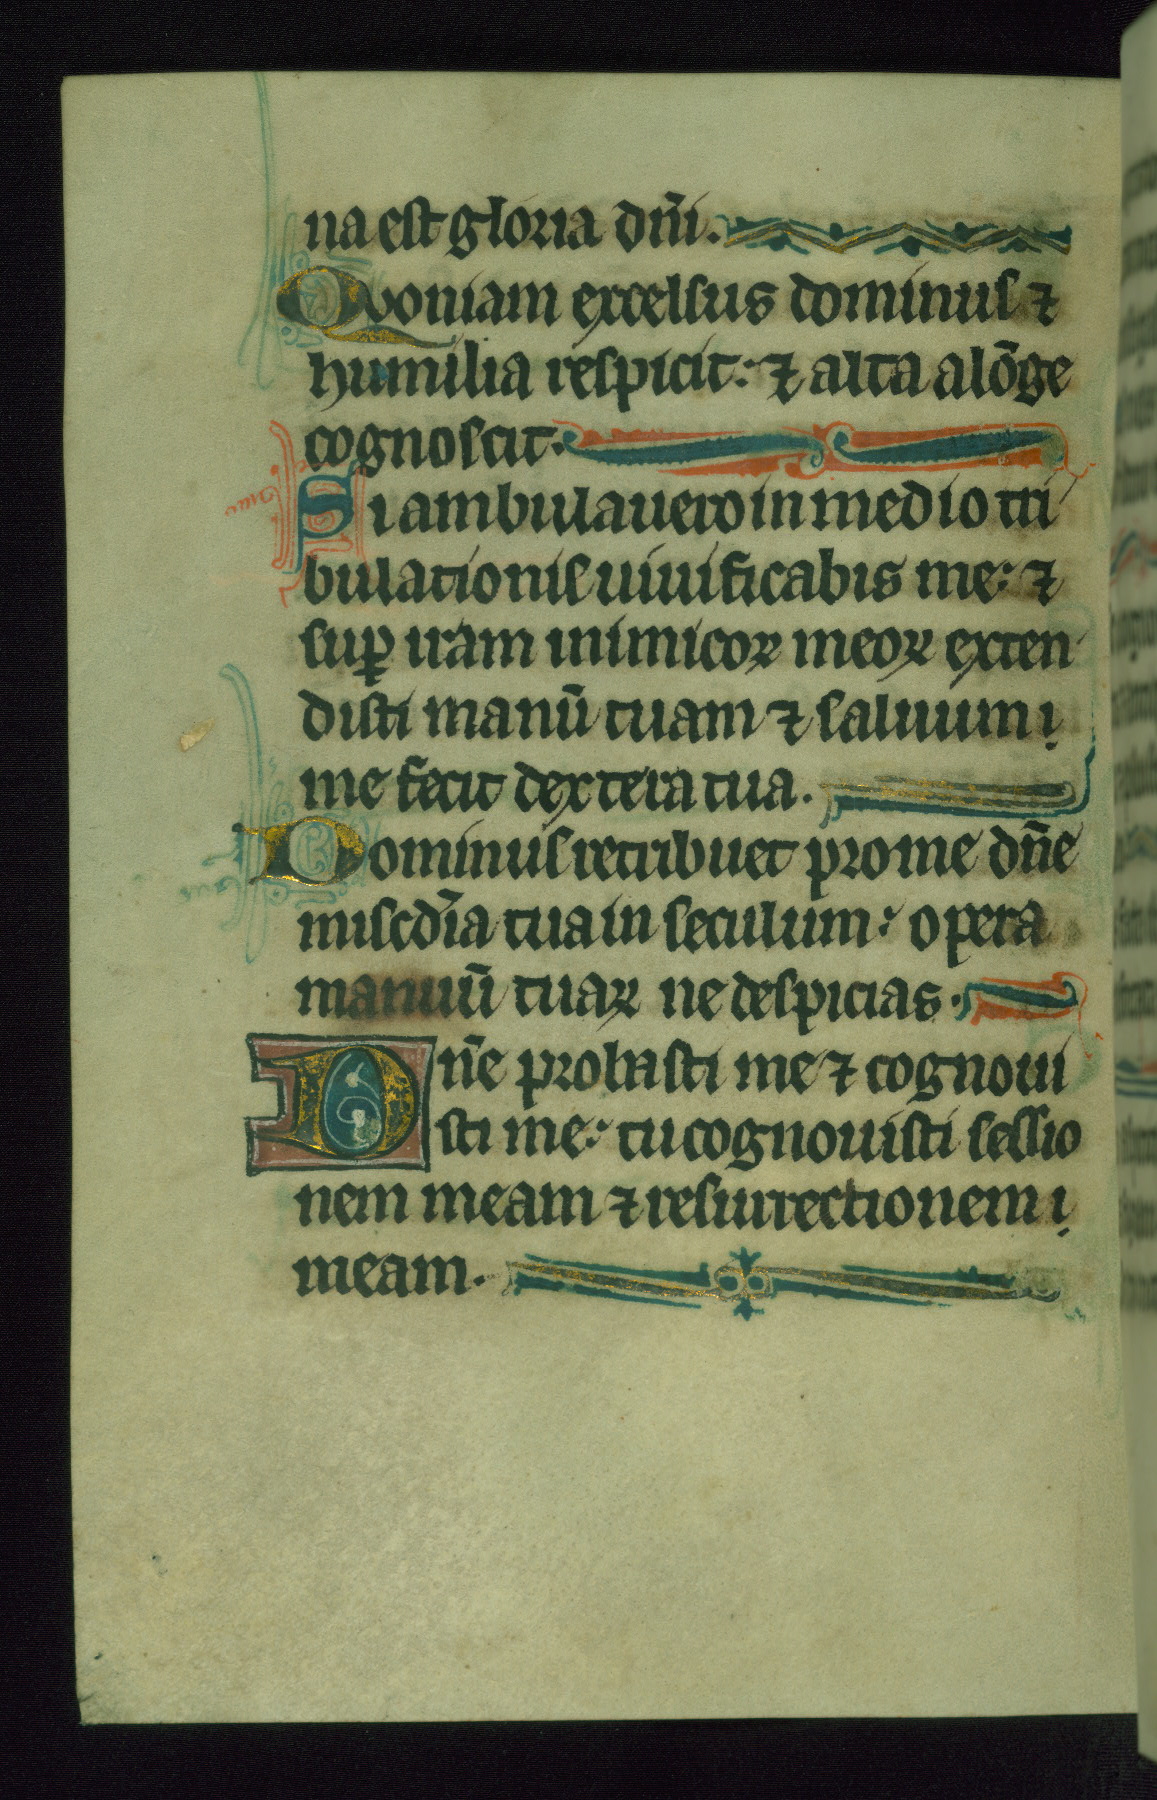 na est gloria dñi.
Quoniam excelsus dominus ⁊
humilia respicit: ⁊ alta alōge
cognoscit.
Si ambulauero in medio tri
bulationis uiuificabis me: ⁊
suꝑ iram inimicoꝝ meoꝝ exten
disti manū tuam ⁊ saluum
me fecit dextera tua.
Dominus retribuet pro me dñe
miscdīa tua in seculum: opera
manuū tuaꝝ ne despicias.
Dñe probasti me ⁊ cognoui
sti me: tu cognouisti sessio
nem meam ⁊ resurrectionem
meam.